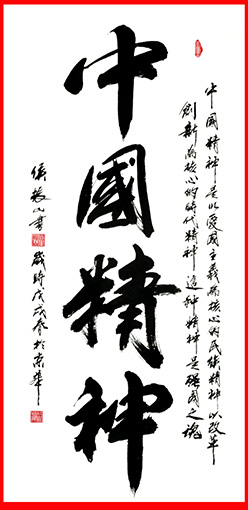 中國精神是以愛國主義為核心的民族精神以改革
創新為核心的時代精神 這種精神是強國之魂
中國精神
山書
歲時戊戌春於京華